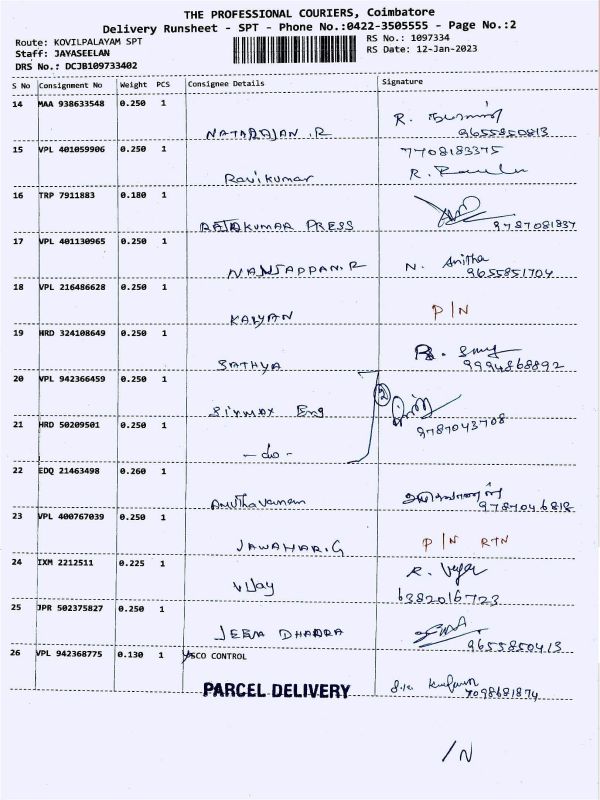 THE PROFESSIONAL COURIERS, Coimbatore
Delivery Runsheet - SPT - Phone No.:0422-3505555 - Page No.:2
Route: KOVILPALAYAM SPT RS No.: 1097334
Staff: JAYASEELAN RS Date: 12-Jan-2023
DRS No.: DCJB109733402
S No Consignment No Weight PCS Consignee Details Signature
14 MAA 938633548 0.250 1
NATARAJAN .R R.
9655850813
15 VPL 401059906 0.250 1 7708183375
Ravikumar R.
16 TRP 7911883 0.180 1
RAJKUMAR PRESS 9787081837
17 VPL 401130965 0.250 1
NANJAPPAN.R N. Anitha
9655851704
18 VPL 216486628 0.250 1
KALYAN P/N
19 HRD 324108649 0.250 1
SATHYA 9994868892
20 VPL 942366459 0.250 1 2
Eng
21 HRD 50209501 0.250 1 9787043708
- do -
22 EDQ 21463498 0.260 1
9787046818
23 VPL 400767039 0.250 1
JAWAHAR.G P/N RTN
24 IXM 2212511 0.225 1 R.
Vijay
6382016723
25 JPR 502375827 0.250 1
JEEN DHADRA 9655850413
26 VPL 942368775 0.130 1 SCO CONTROL
PARCEL DELIVERY 7098681874
/N